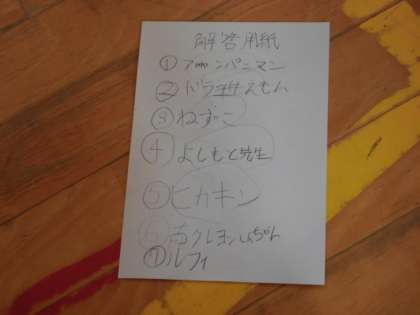 解答用紙
①アンパンマン
②ドラえもん
③ねずこ
④よしもと先生
⑤ヒカキン
⑥クレヨンしんちゃん
⑦ルフィ